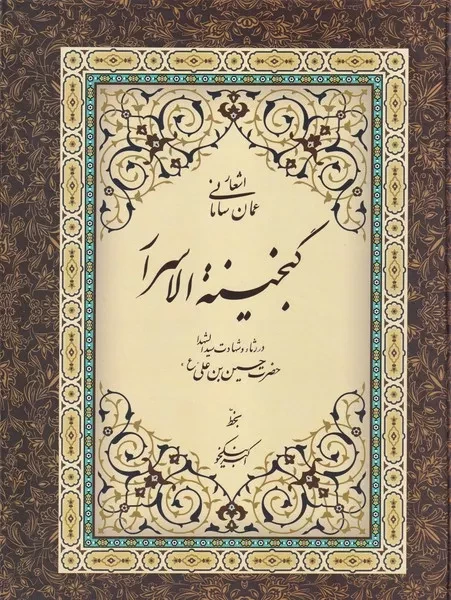 اشعار
عمان سامانی
گنجینة الاسرار
در رثا و شهادت سید الشهدا
حضرت حسین بن علی (ع)
بخط
اکبر نیکخو